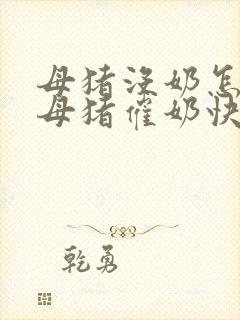 母猪没奶怎
母猪催奶快
乾勇